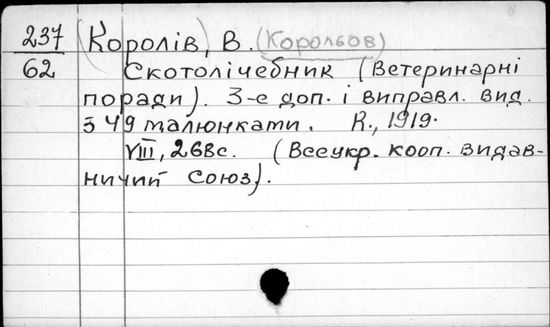 237 Королів, В. (Корольов)
62 Скотолічебник (Ветеринарні
поради). 3-є доп. і виправл. вид.
з 49 малюнками. К., 1919.
VIII, 268с. (Всеукр. кооп. видав-
ничий союз).